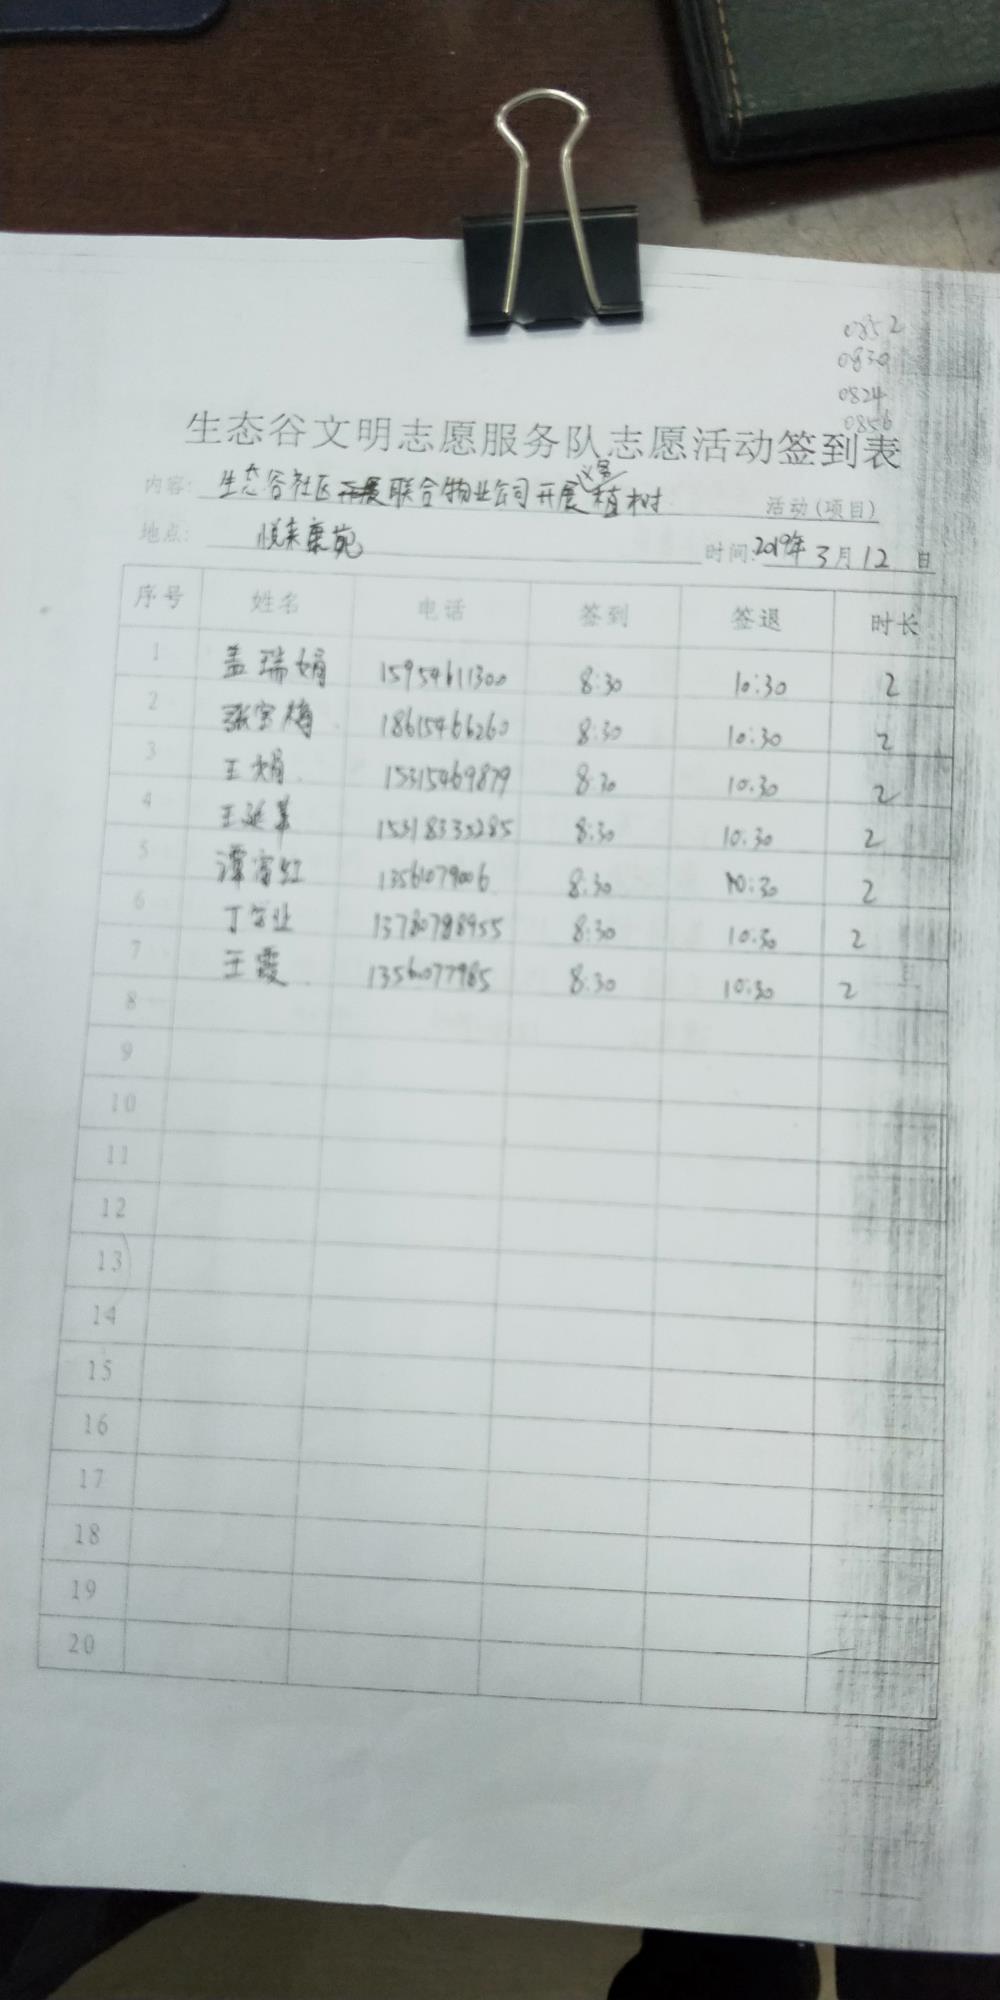 0852
0830
0824
0856
生态谷文明志愿服务队志愿活动签到表
内容: 生态谷社区开展联合物业公司开展义务植树 活动(项目)
地点: 悦来康苑 时间: 2019年 3月12日
序号 姓名 电话 签到 签退 时长
1 盖瑞娟 15954611300 8:30 10:30 2
2 张宝梅 18615466260 8:30 10:30 2
3 王娟 15315469879 8:30 10:30 2
4 王延革 15318335285 8:30 10:30 2
5 谭富红 13561079006 8:30 10:30 2
6 丁 业 13780798955 8:30 10:30 2
7 王霞 13561077985 8:30 10:30 2
8
9
10
11
12
13
14
15
16
17
18
19
20